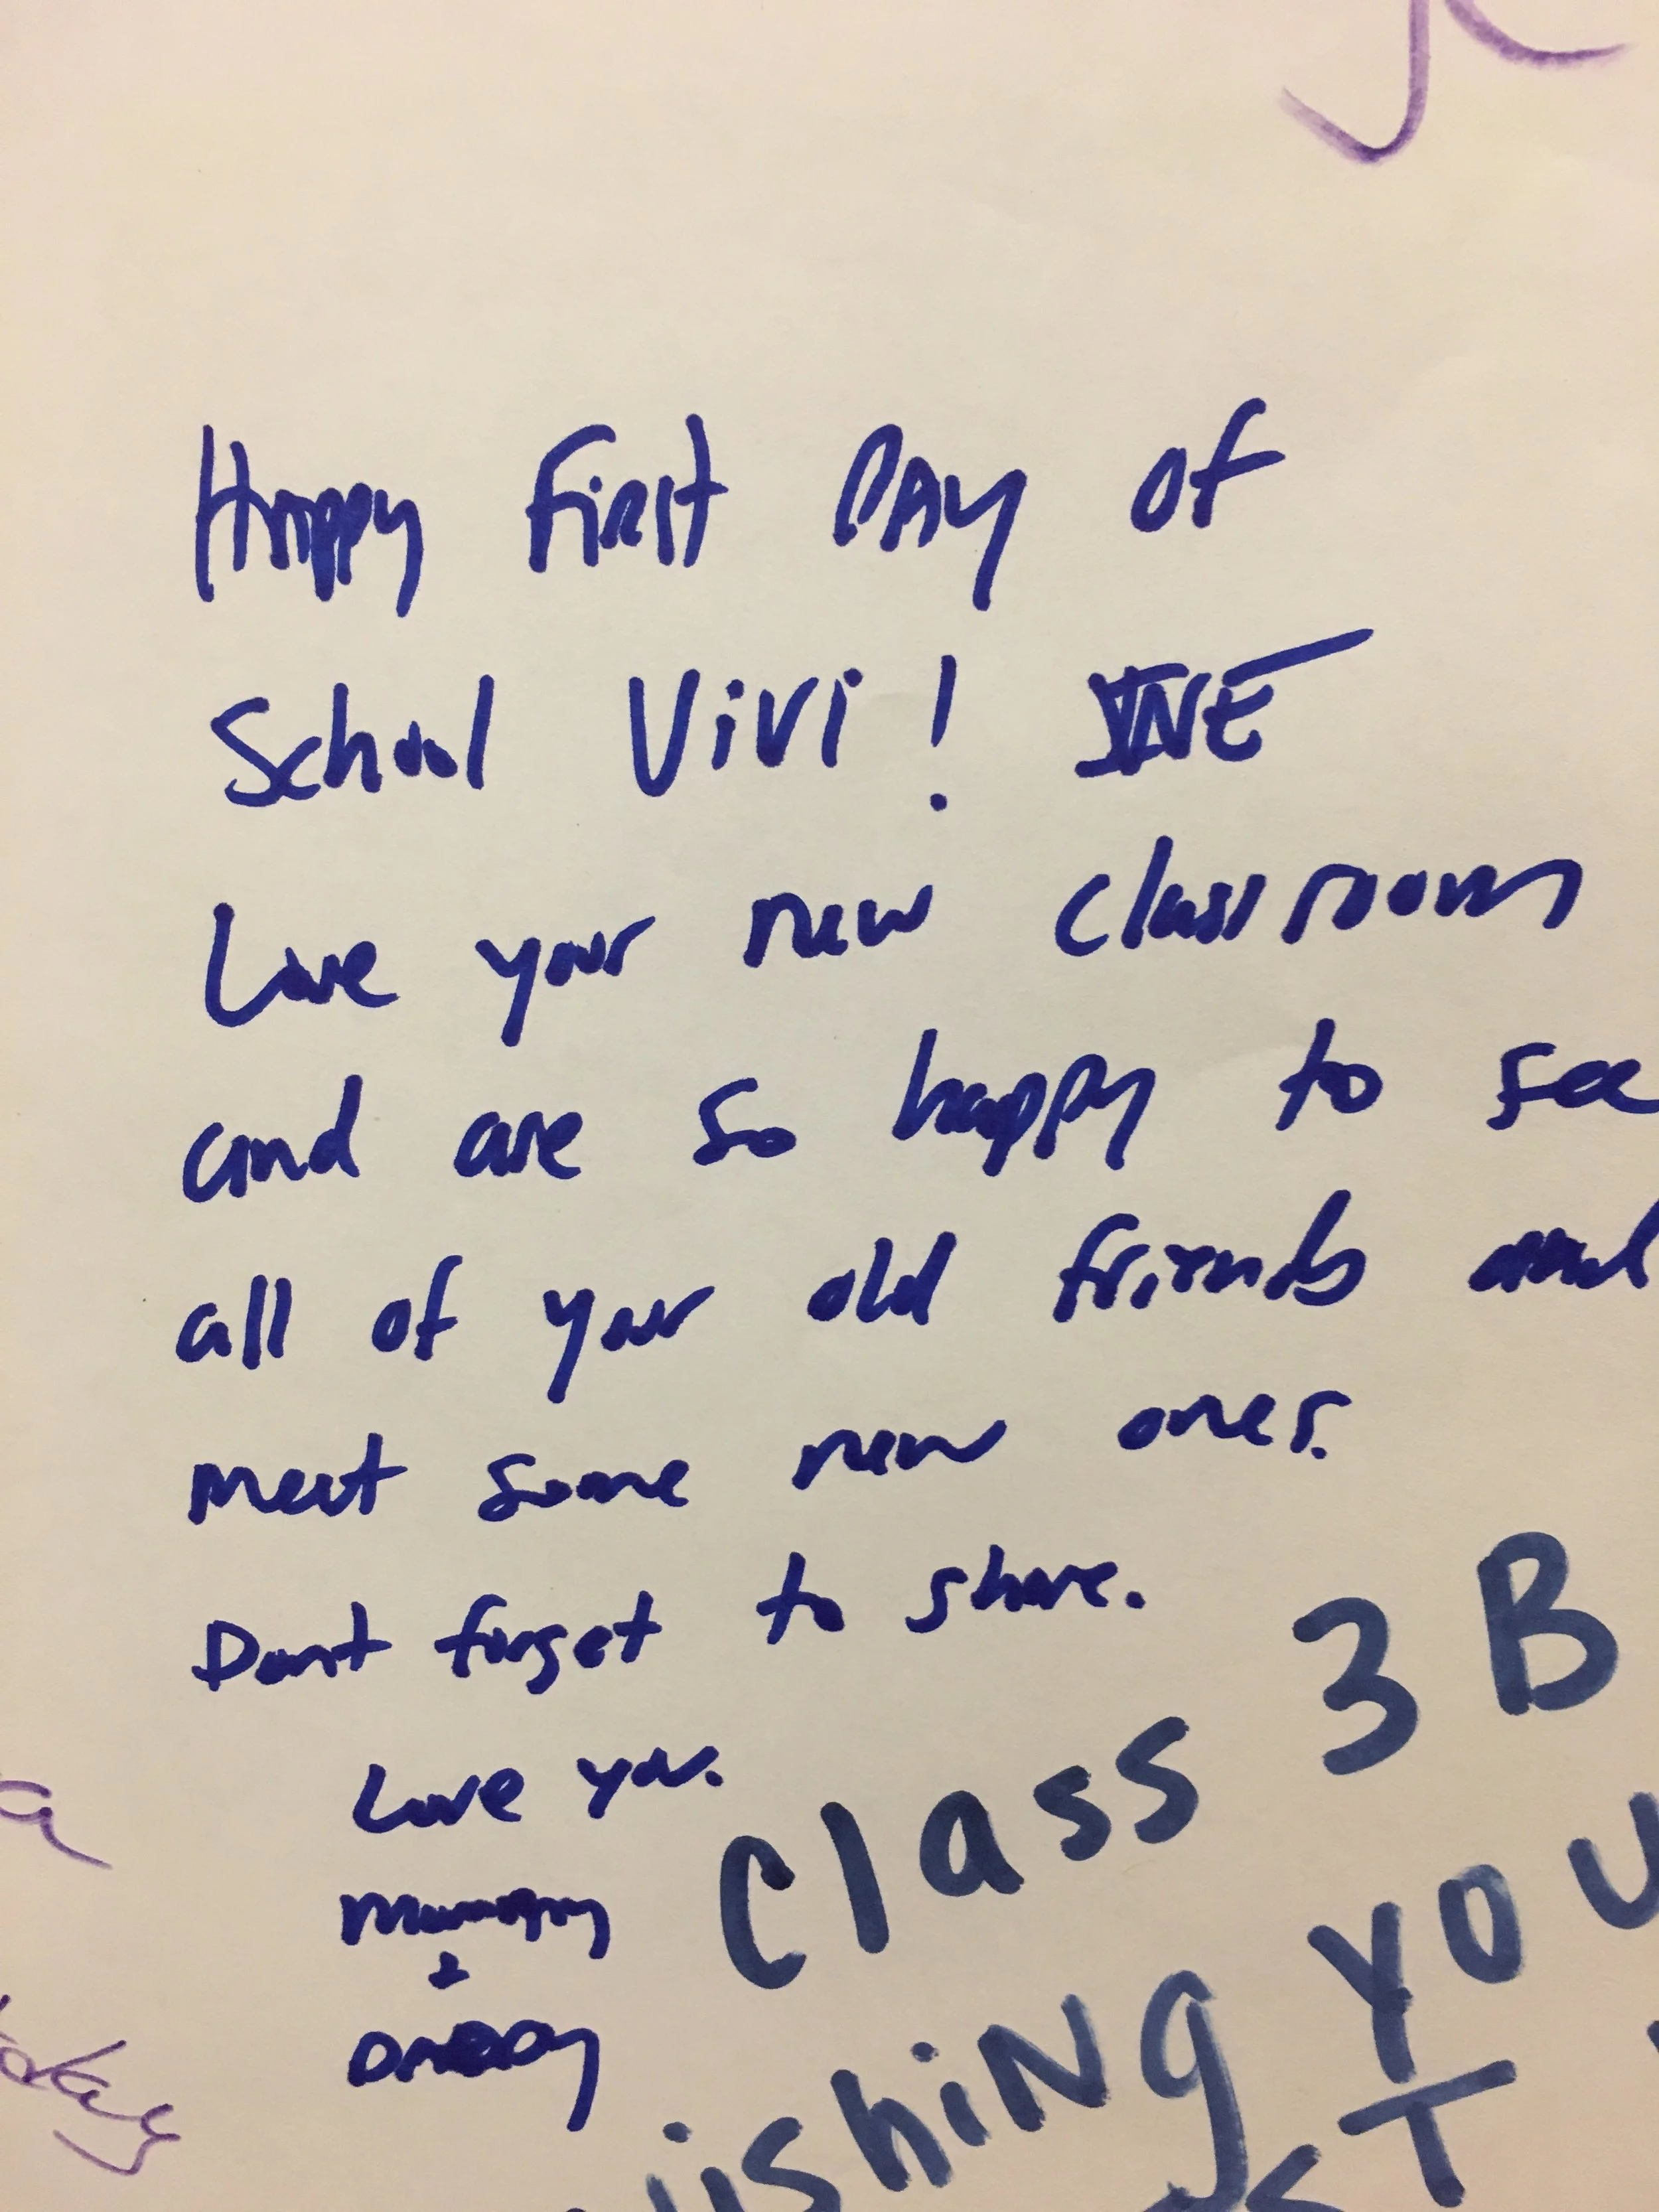 Happy First DAy of
School ViVi! WE
Love your new classroom
and are so happy to see
all of your old friends and
meet some new ones.
Dont forget to share.
Love you.
Mommy
+
DADDy
Class 3 B
ishiNg YOU
ST